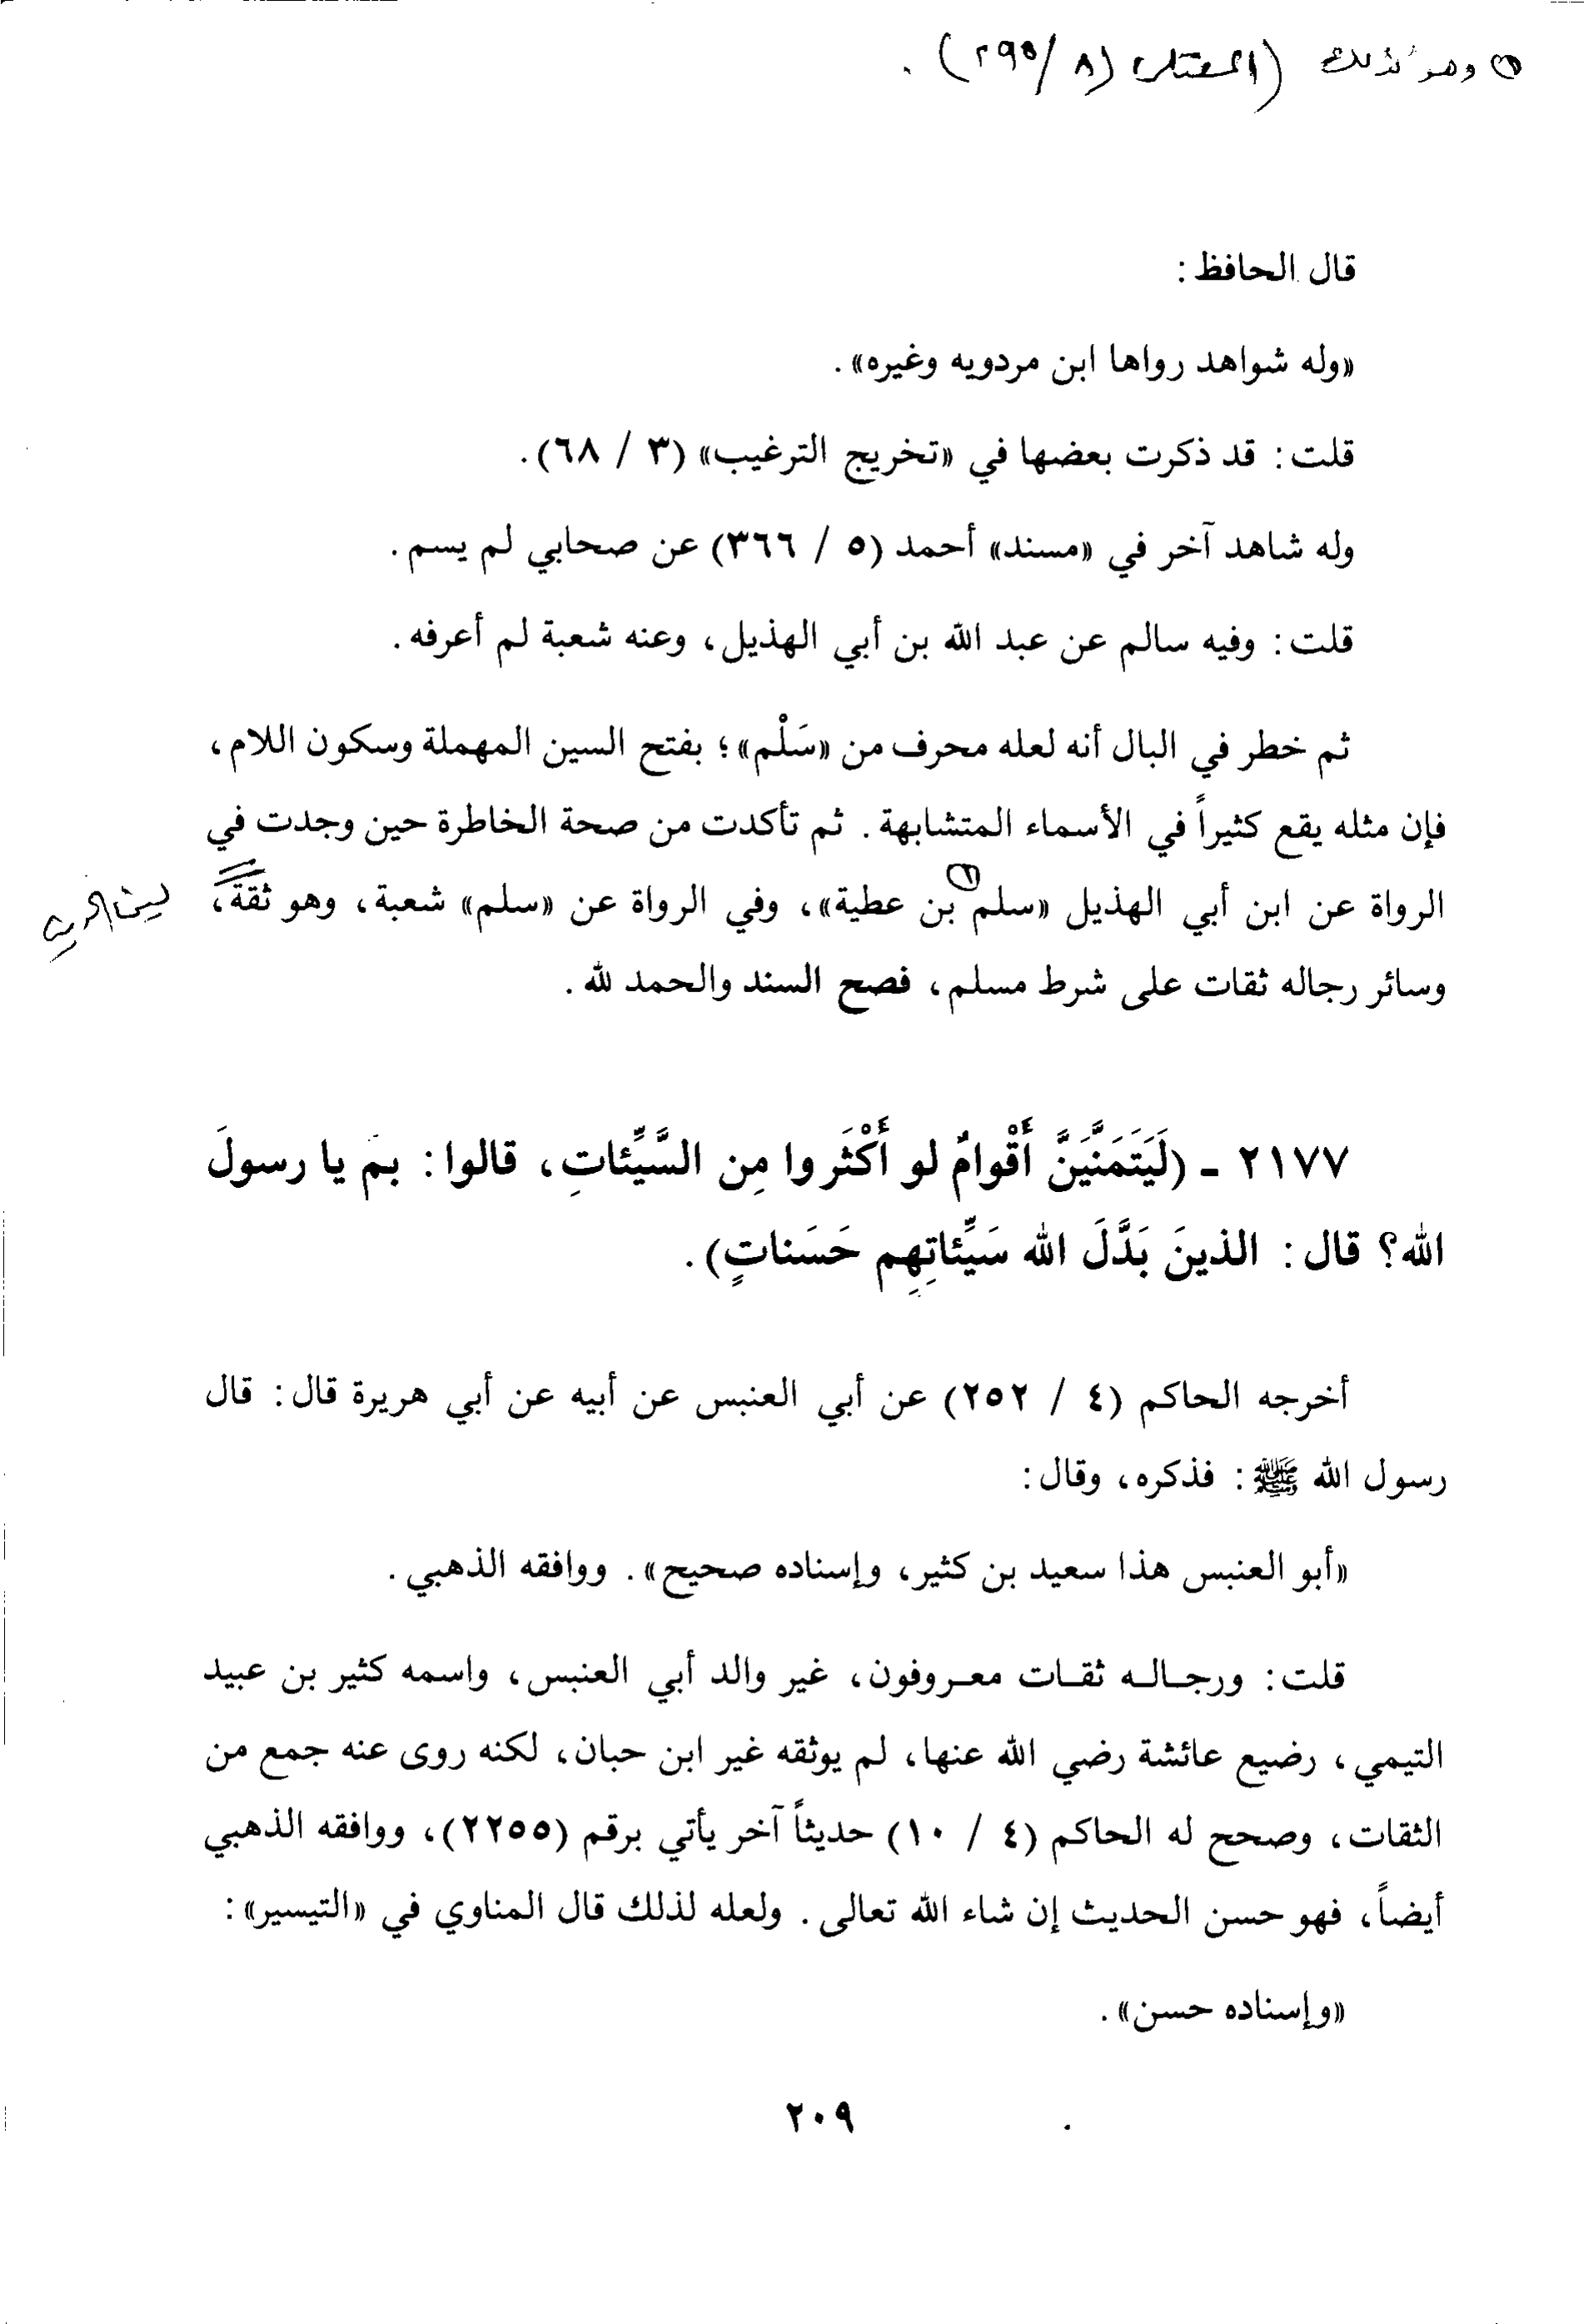 (١) وهو كذلك (٨/٢٩٥).
قال الحافظ:
«وله شواهد رواها ابن مردويه وغيره».
قلت: قد ذكرت بعضها في «تخريج الترغيب» (٣ / ٦٨).
وله شاهد آخر في «مسند» أحمد (٥ / ٣٦٦) عن صحابي لم يسم.
قلت: وفيه سالم عن عبد الله بن أبي الهذيل، وعنه شعبة لم أعرفه.
ثم خطر في البال أنه لعله محرف من «سَلْم»؛ بفتح السين المهملة وسكون اللام،
فإن مثله يقع كثيراً في الأسماء المتشابهة. ثم تأكدت من صحة الخاطرة حين وجدت في
الرواة عن ابن أبي الهذيل «سلم (١) بن عطية»، وفي الرواة عن «سلم» شعبة، وهو ثقة،
لين الحديث
وسائر رجاله ثقات على شرط مسلم، فصح السند والحمد لله.
٢١٧٧ ـ (لَيَتَمَنَّيَنَّ أَقْوامٌ لو أَكْثَروا مِن السَّيِّئاتِ، قالوا: بمَ يا رسولَ
الله؟ قال: الذينَ بَدَّلَ الله سَيِّئاتِهِم حَسَناتٍ).
أخرجه الحاكم (٤ / ٢٥٢) عن أبي العنبس عن أبيه عن أبي هريرة قال: قال
رسول الله ﷺ: فذكره، وقال:
«أبو العنبس هذا سعيد بن كثير، وإسناده صحيح». ووافقه الذهبي.
قلت: ورجاله ثقات معروفون، غير والد أبي العنبس، واسمه كثير بن عبيد
التيمي، رضيع عائشة رضي الله عنها، لم يوثقه غير ابن حبان، لكنه روى عنه جمع من
الثقات، وصحح له الحاكم (٤ / ١٠) حديثاً آخر يأتي برقم (٢٢٥٥)، ووافقه الذهبي
أيضاً، فهو حسن الحديث إن شاء الله تعالى. ولعله لذلك قال المناوي في «التيسير»:
«وإسناده حسن».
٢٠٩